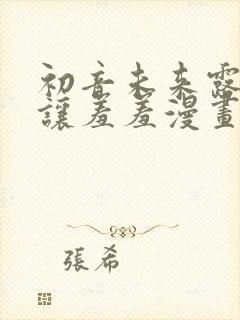 初音未来露
讓羞羞漫畫
張希